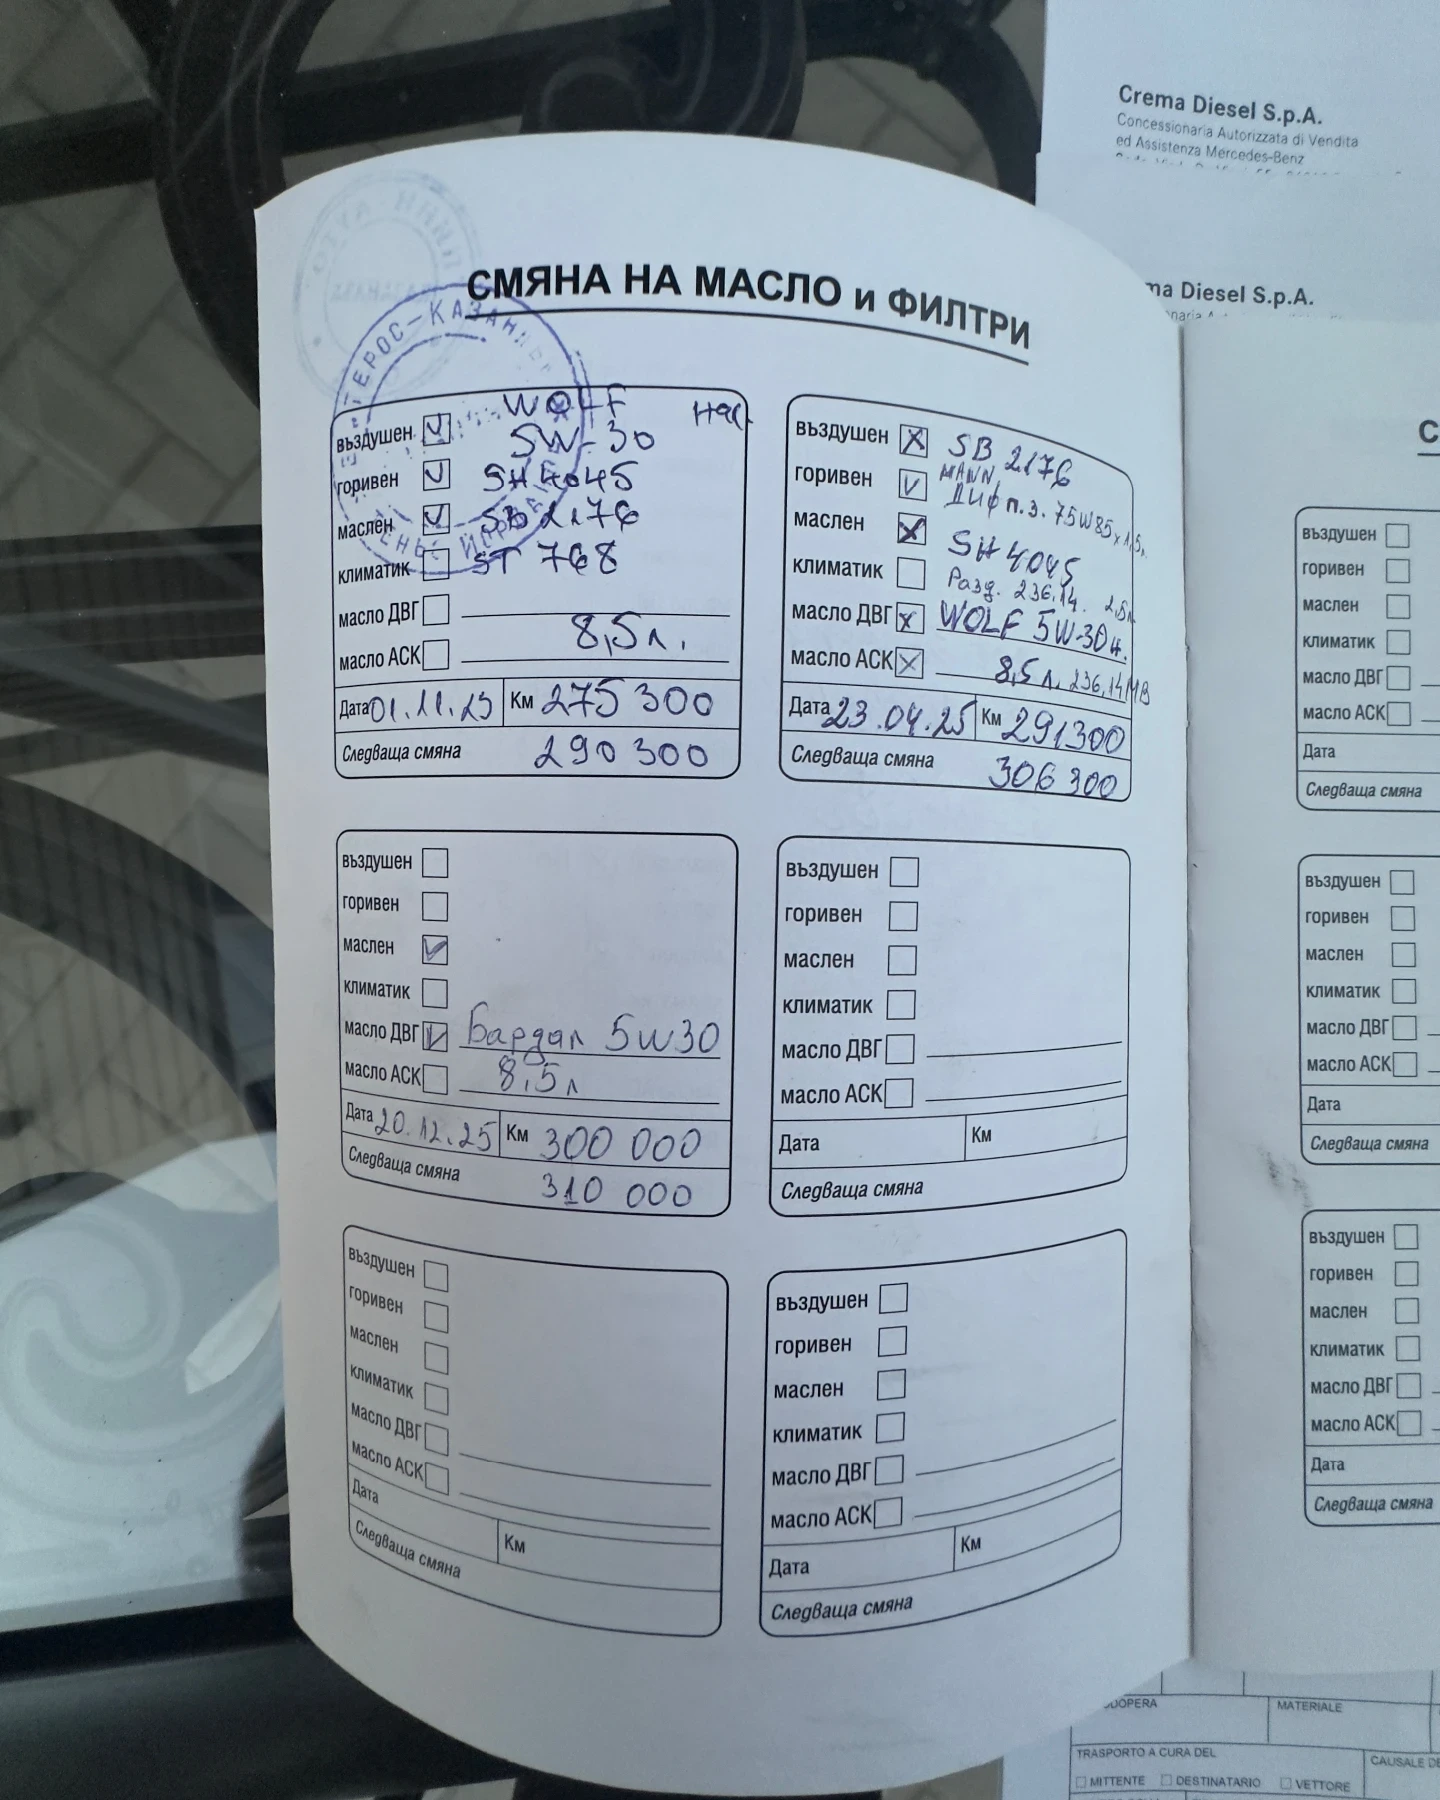 Crema Diesel S.p.A.
Concessionaria Autorizzata di Vendita
ed Assistenza Mercedes-Benz
ma Diesel S.p.A.
СМЯНА НА МАСЛО и ФИЛТРИ
ТЕРОС-КАЗАНЛ
WOLF
въздушен 5W-30
горивен SH4045
маслен SB2176
климатик ST 768
масло ДВГ
8,5л.
масло АСК
Дата 01.11.23 Км 275 300
Следваща смяна 290 300
въздушен SB 2176
MANN
горивен Диф п.з. 75W85 x 1,5л.
маслен SH 4045
климатик Разд. 236.14. 2,5л
масло ДВГ WOLF 5W-30
масло АСК 8,5л. 236,14 MB
Дата 23.04.25 Км 291300
Следваща смяна 306 300
въздушен
горивен
маслен
климатик
масло ДВГ Бардал 5w30
масло АСК 8,5л
Дата 20.12.25 Км 300 000
Следваща смяна 310 000
въздушен
горивен
маслен
климатик
масло ДВГ
масло АСК
Дата Км
Следваща смяна
въздушен
горивен
маслен
климатик
масло ДВГ
масло АСК
Дата Км
Следваща смяна
въздушен
горивен
маслен
климатик
масло ДВГ
масло АСК
Дата Км
Следваща смяна
С
въздушен
горивен
маслен
климатик
масло ДВГ
масло АСК
Дата
Следваща смяна
въздушен
горивен
маслен
климатик
масло ДВГ
масло АСК
Дата
Следваща смяна
въздушен
горивен
маслен
климатик
масло ДВГ
масло АСК
Дата
Следваща смяна
DOPERA MATERIALE
TRASPORTO A CURA DEL CAUSALE DE
MITTENTE DESTINATARIO VETTORE